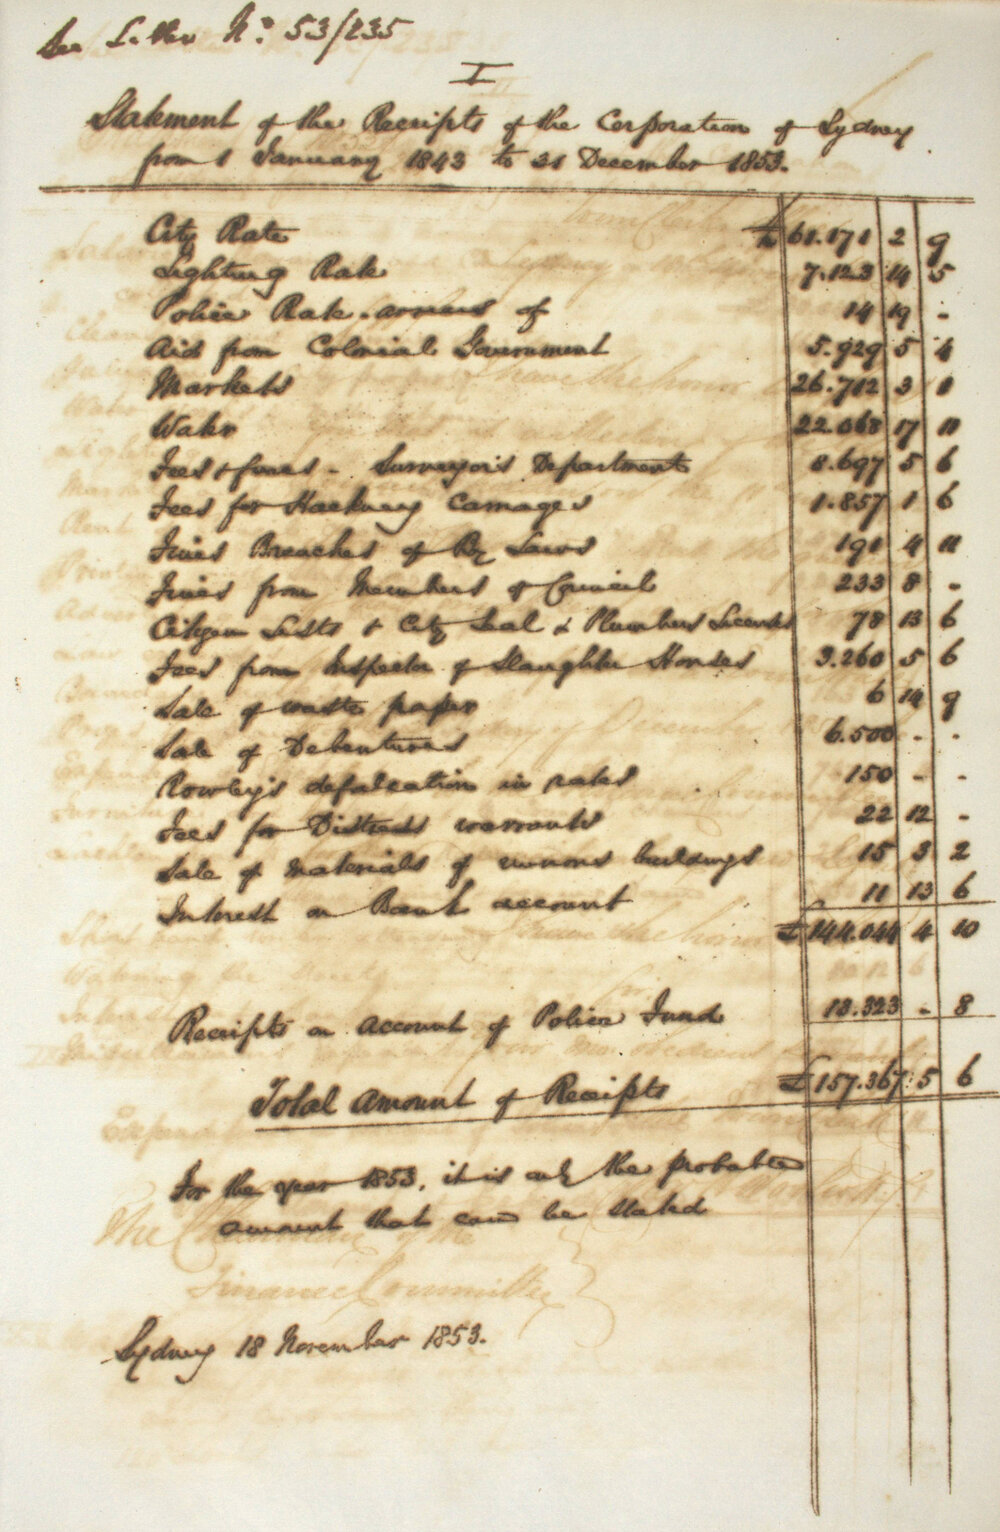 See Letter No. 53/235
I
Statement of the Receipts of the Corporation of Sydney
from 1 January 1843 to 31 December 1853.
City Rate £ 61.171 2 9
Lighting Rate 7.123 14 5
Police Rate - arrears of 14 19 -
Aid from Colonial Government 5.929 5 4
Markets 26.712 3 1
Water 22.068 17 11
Fees & fines - Surveyor's Department 8.697 5 6
Fees for Hackney Carriages 1.857 1 6
Fines Breaches of By Laws 191 4 11
Fines from Members of Council 233 8 -
Citizen Lists & City Seal & Plumbers Licenses 78 13 6
Fees from Inspector of Slaughter Houses 3.260 5 6
Sale of waste paper 6 14 9
Sale of Debentures 6.500 - -
Rowley's defalcation in rates 150 - -
Fees for Distress warrants 22 12 -
Sale of Materials of various buildings 15 3 2
Interest on Bank account 11 13 6
£ 144.044 4 10
Receipts on account of Police Fund 13.323 - 8
Total amount of Receipts £ 157.367 5 6
For the year 1853, it is only the probable
amount that can be stated
The Chairman of the
Finance Committee
Sydney 18 November 1853.